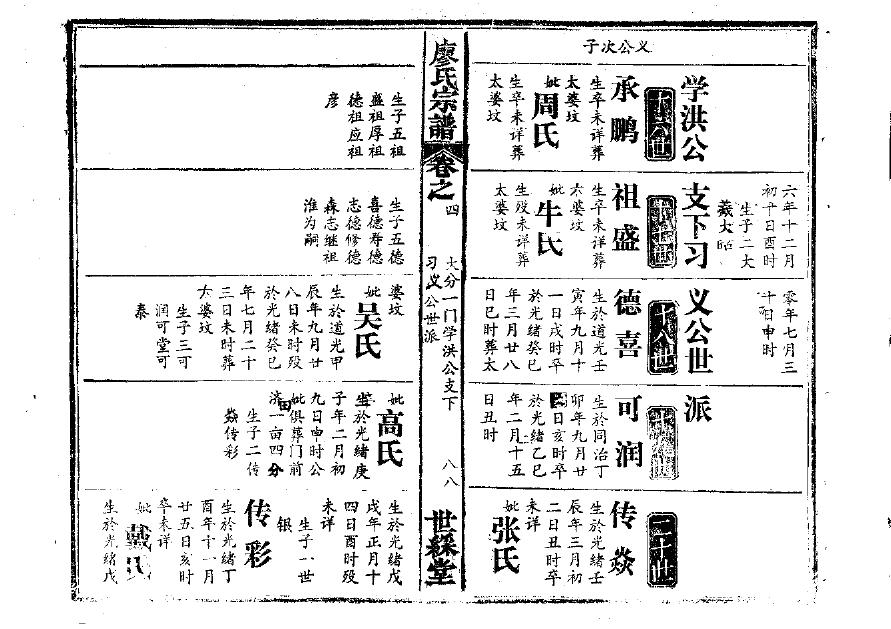 六年十二月
初十日酉时
生子二大
零年七月三
十日申时
学洪公
支下习
义公世
派
义公次子
十六世
承鹏
生卒未详葬
太婆坟
妣周氏
生卒未详葬
太婆坟
生子五祖
盛祖厚祖
德祖应祖
彦
祖盛
生卒未详葬
太婆坟
妣牛氏
生殁未详葬
太婆坟
生子五德
喜德寿德
志德修德
森志继祖
淮为嗣
十八世
德喜
生於道光壬
寅年九月十
一日戌时卒
於光绪癸巳
年三月廿八
日巳时葬太
婆坟
妣吴氏
生於道光甲
辰年九月廿
八日未时殁
於光绪癸巳
年七月二十
三日未时葬
太婆坟
生子三可
润可堂可
泰
可润
生於同治丁
卯年九月廿
日亥时卒
於光绪乙巳
年二月十五
日丑时
妣高氏
生於光绪庚
子年二月初
九日申时公
妣俱葬门前
济田一亩四分
生子二传
焱传彩
二十世
传焱
生於光绪壬
辰年三月初
二日丑时卒
未详
妣张氏
生於光绪戊
戌年正月十
四日酉时殁
未详
生子一世
银
传彩
生於光绪丁
酉年十一月
廿五日亥时
卒未详
妣戴氏
生於光绪戊
廖氏宗谱
卷之四
大分一门学洪公支下
习义公世派
八八
世綵堂